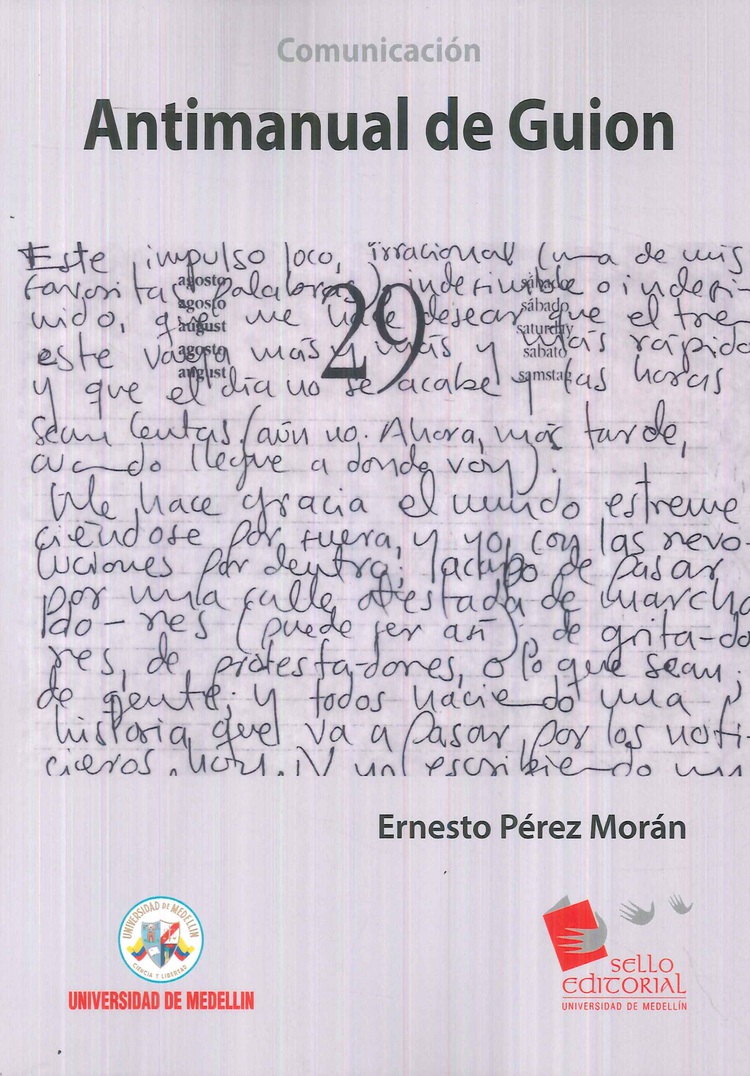 Comunicación
Antimanual de Guion
Este impulso loco, irracional (una de mis
favoritas palabras), indefinible o indefi-
nido, que me hace desear que el tren
este vaya más y más y más rápido
y que el día no se acabe y las horas
sean lentas (aún no. Ahora, más tarde,
cuando llegue a donde voy).
Me hace gracia el mundo estreme
ciéndose por fuera, y yo, con las revo-
luciones por dentro; acabo de pasar
por una calle atestada de marcha
do-res (puede ser así), de grita-do
res, de protesta-dores, o lo que sean;
de gente; y todos haciendo una
historia que va a pasar por los noti-
cieros. hoy. Y yo escribiendo
agosto
agosto
august
agosto
august
29
sábado
sábado
saturday
sabato
samstag
Ernesto Pérez Morán
UNIVERSIDAD DE MEDELLIN
CIENCIA Y LIBERTAD
UNIVERSIDAD DE MEDELLIN
SELLO
EDITORIAL
UNIVERSIDAD DE MEDELLÍN